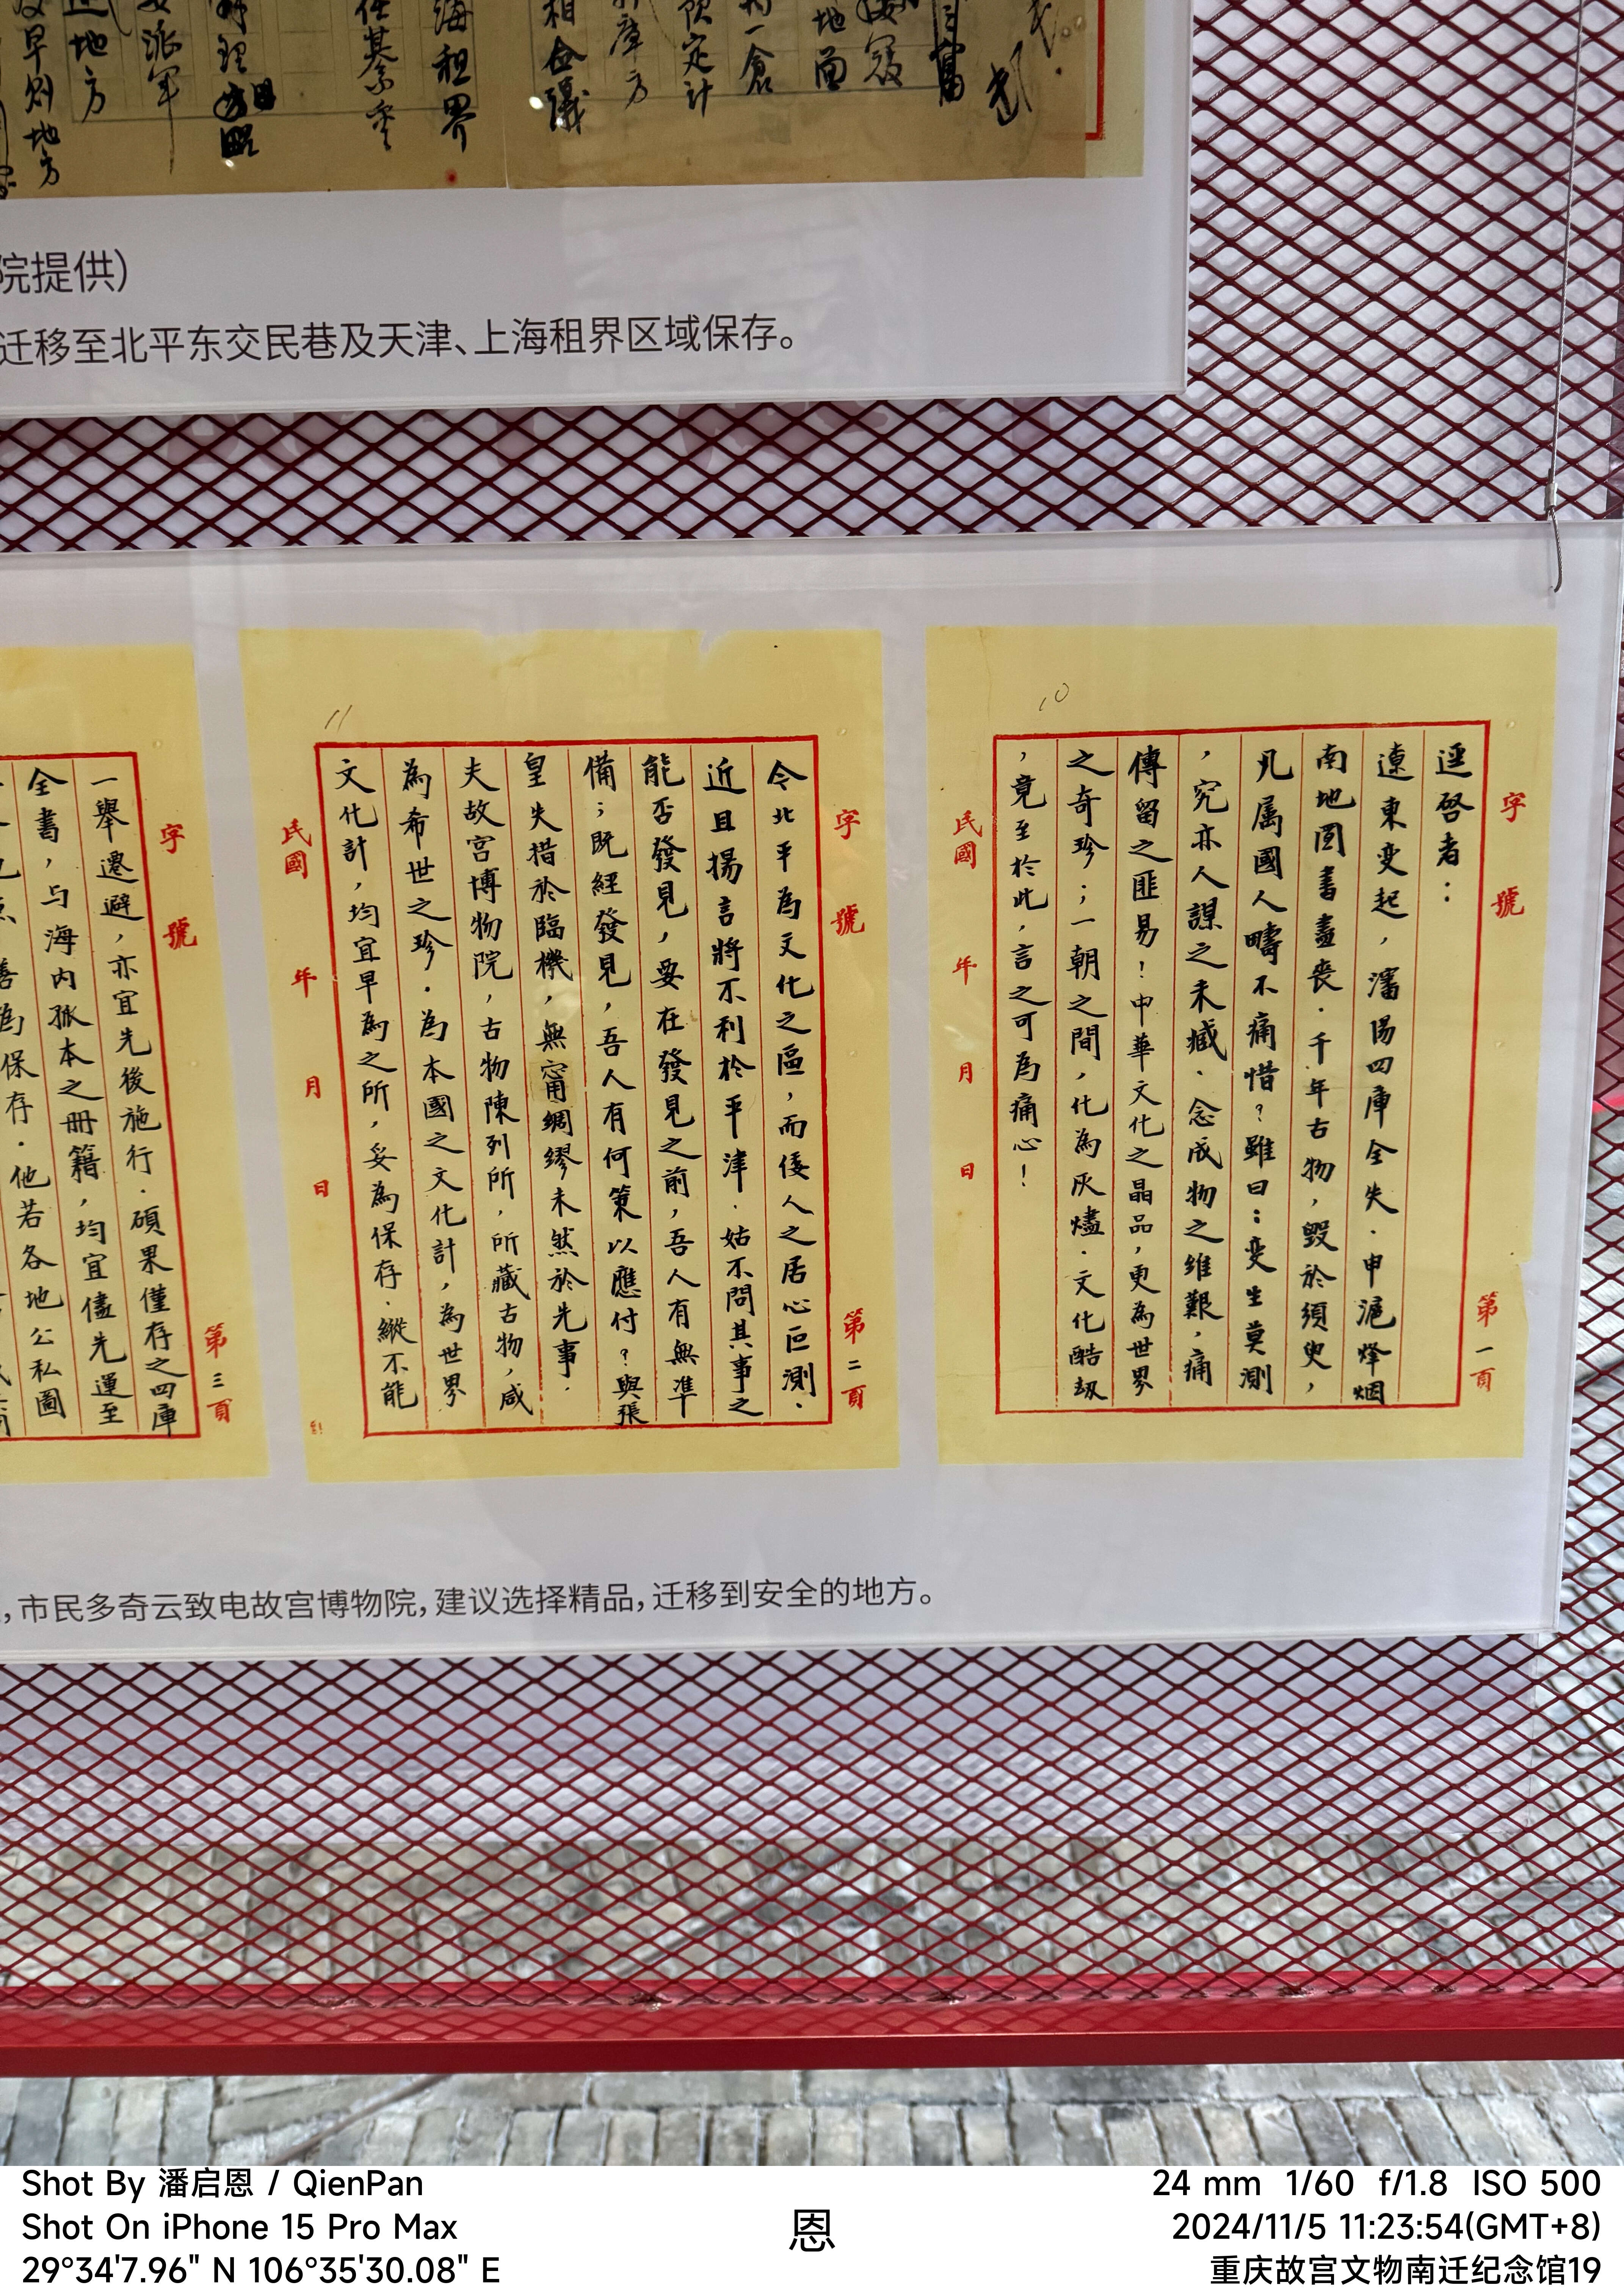 院提供）
迁移至北平东交民巷及天津、上海租界区域保存。
10
字 號
第一頁
逕啓者：
遼東变起，瀋陽四庫全失．申滬烽烟
南地圖書盡丧．千年古物，毀於須臾，
凡属國人疇不痛惜？雖曰：变生莫測
，究亦人謀之未臧．念成物之维艱，痛
傳留之匪易！中華文化之晶品，更為世界
之奇珍；一朝之間，化為灰燼．文化酷刼
，竟至於此，言之可為痛心！
民國 年 月 日
11
字 號
第二頁
今北平為文化之區，而倭人之居心叵測．
近且揚言將不利於平津．姑不問其事之
能否發見，要在發見之前，吾人有無準
備；既經發見，吾人有何策以應付？與張
皇失措於臨機，無甯綢繆未然於先事．
夫故宮博物院，古物陳列所，所藏古物，咸
為希世之珍．為本國之文化計，為世界
文化計，均宜早為之所，妥為保存．縱不能
民國 年 月 日
字 號
第三頁
一舉遷避，亦宜先後施行．碩果僅存之四庫
全書，与海内孤本之册籍，均宜儘先運至
保存．他若各地公私圖
，市民多奇云致电故宫博物院，建议选择精品，迁移到安全的地方。
Shot By 潘启恩 / QienPan
Shot On iPhone 15 Pro Max
29°34'7.96" N 106°35'30.08" E
恩
24 mm 1/60 f/1.8 ISO 500
2024/11/5 11:23:54(GMT+8)
重庆故宫文物南迁纪念馆19